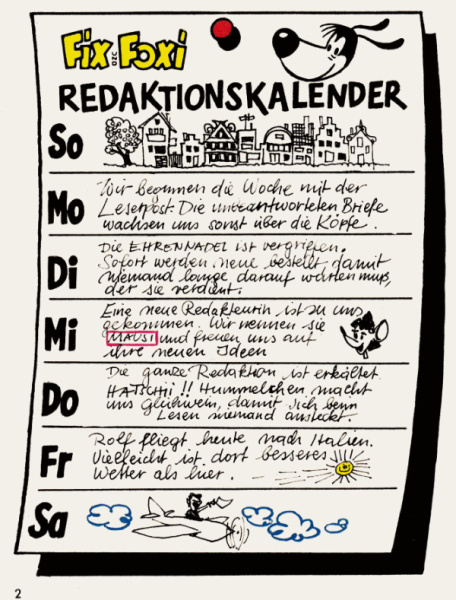 Fix und Foxi
REDAKTIONSKALENDER
So
Mo
Wir beginnen die Woche mit der
Leserpost. Die unbeantworteten Briefe
wachsen uns sonst über die Köpfe.
Di
Die EHRENNADEL ist vergriffen.
Sofort werden neue bestellt, damit
niemand lange darauf warten muß,
der sie verdient.
Mi
Eine neue Redakteurin ist zu uns
gekommen. Wir nennen sie
MAUSI und freuen uns auf
ihre neuen Ideen
Do
Die ganze Redaktion ist erkältet.
HATSCHII!! Hummelchen macht
uns Glühwein, damit sich beim
Lesen niemand ansteckt.
Fr
Rolf fliegt heute nach Italien.
Vielleicht ist dort besseres
Wetter als hier.
Sa
2